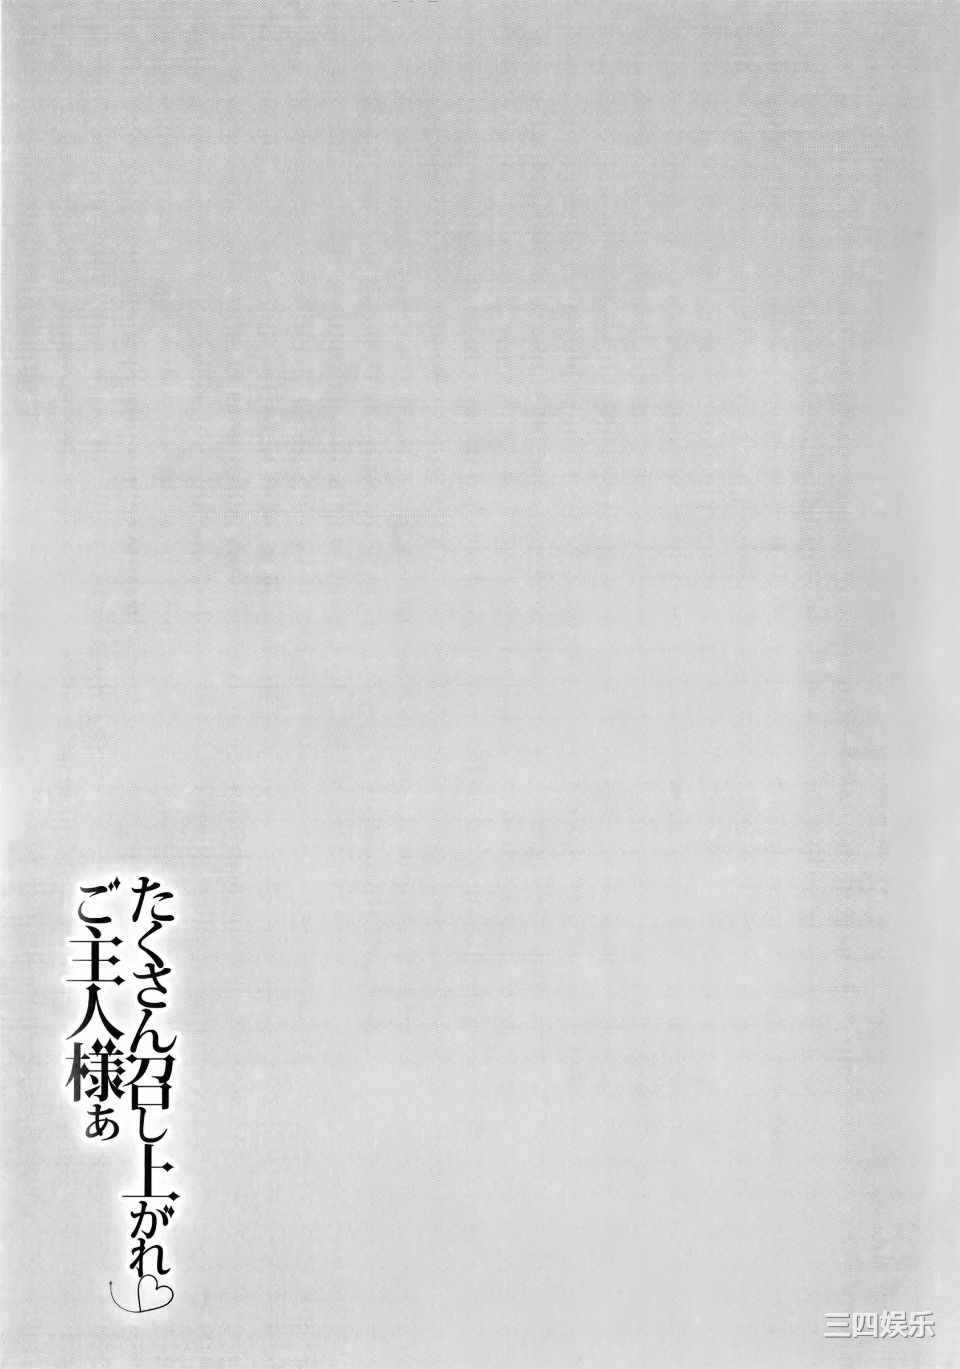 たくさん召し上がれ♡
ご主人様ぁ
三四娱乐